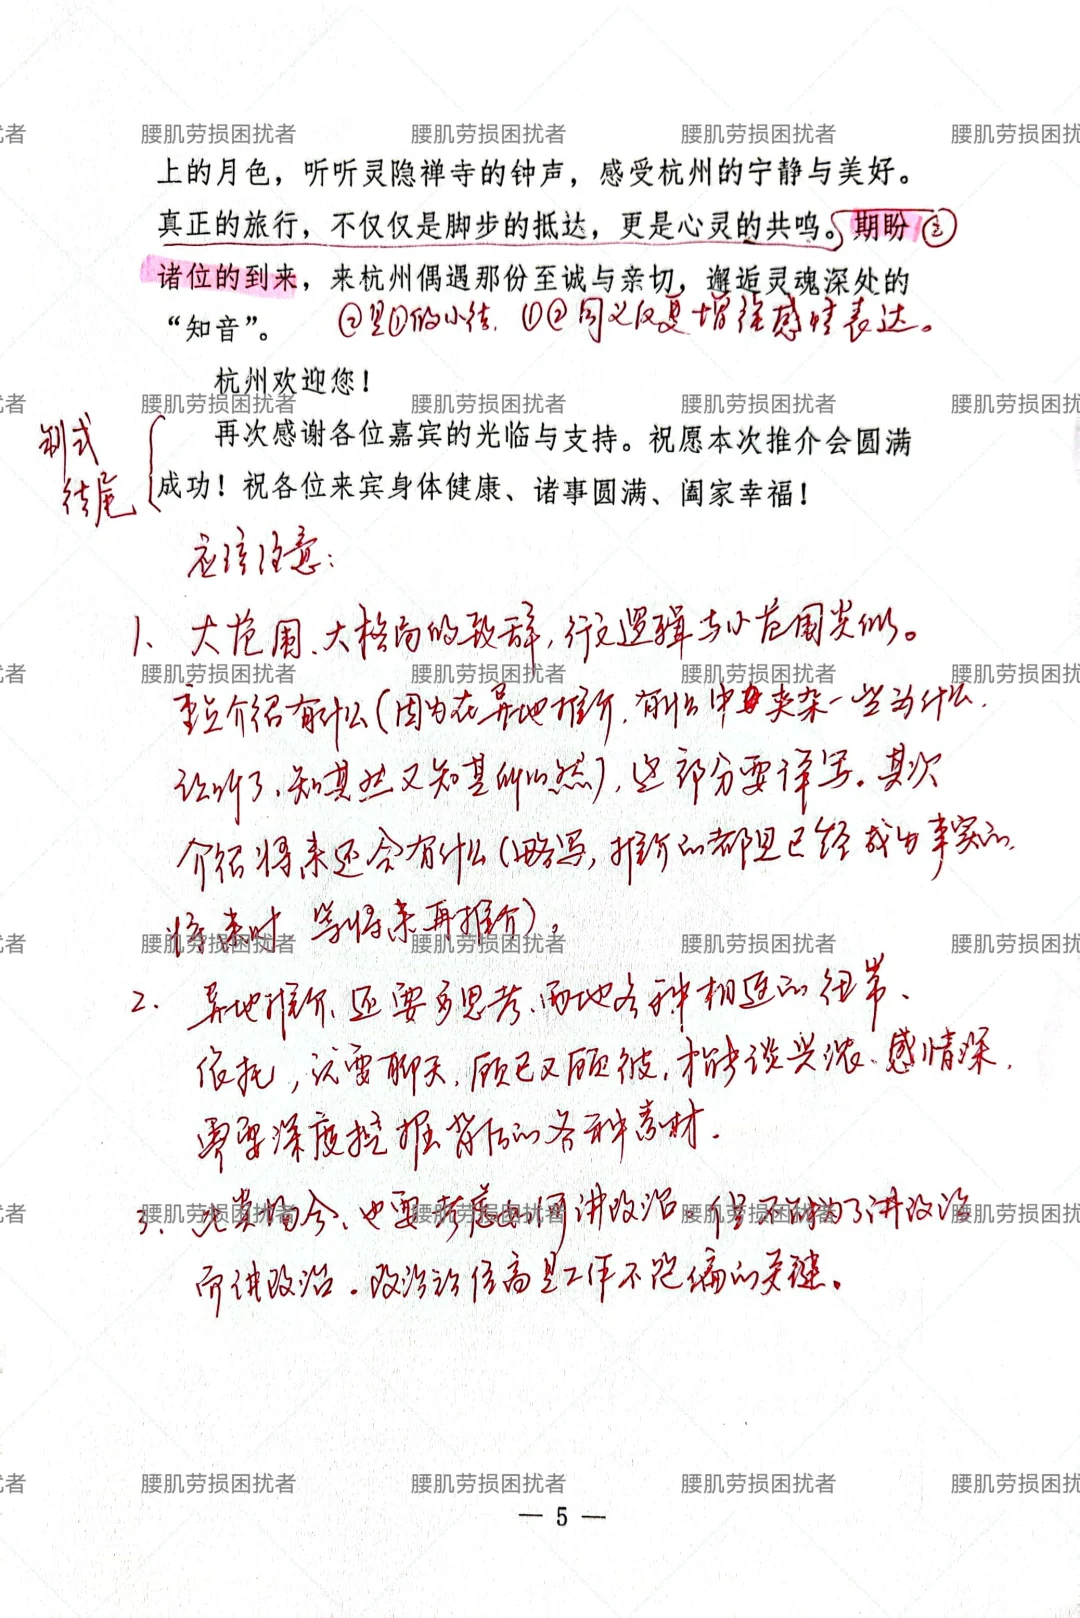 上的月色，听听灵隐禅寺的钟声，感受杭州的宁静与美好。
真正的旅行，不仅仅是脚步的抵达，更是心灵的共鸣。期盼 ②
诸位的到来，来杭州偶遇那份至诚与亲切，邂逅灵魂深处的
“知音”。 ②是①的小结，①②同义反复增强感情表达。
杭州欢迎您！
制式
结尾
再次感谢各位嘉宾的光临与支持。祝愿本次推介会圆满
成功！祝各位来宾身体健康、诸事圆满、阖家幸福！
应该注意：
1、大范围、大格局的致辞，行文逻辑与小范围类似。
重点介绍有什么（因为在异地推介，有什么中夹杂一些为什么，
让听了、知其然又知其所以然），这部分要详写。其次
介绍将来还会有什么（略写，推介的都是已经成为事实的，
将来时 等将来再推介）。
2、异地推介，还要多思考、两地各种相连的纽带、
依托，就要聊天，顾己又顾彼，才能谈兴浓、感情深，
需要深度挖掘背后的各种素材．
3、 场合、也要考虑如何讲政治。但不能为了讲政治
而讲政治。政治站位高是工作不跑偏的关键。
— 5 —
腰肌劳损困扰者